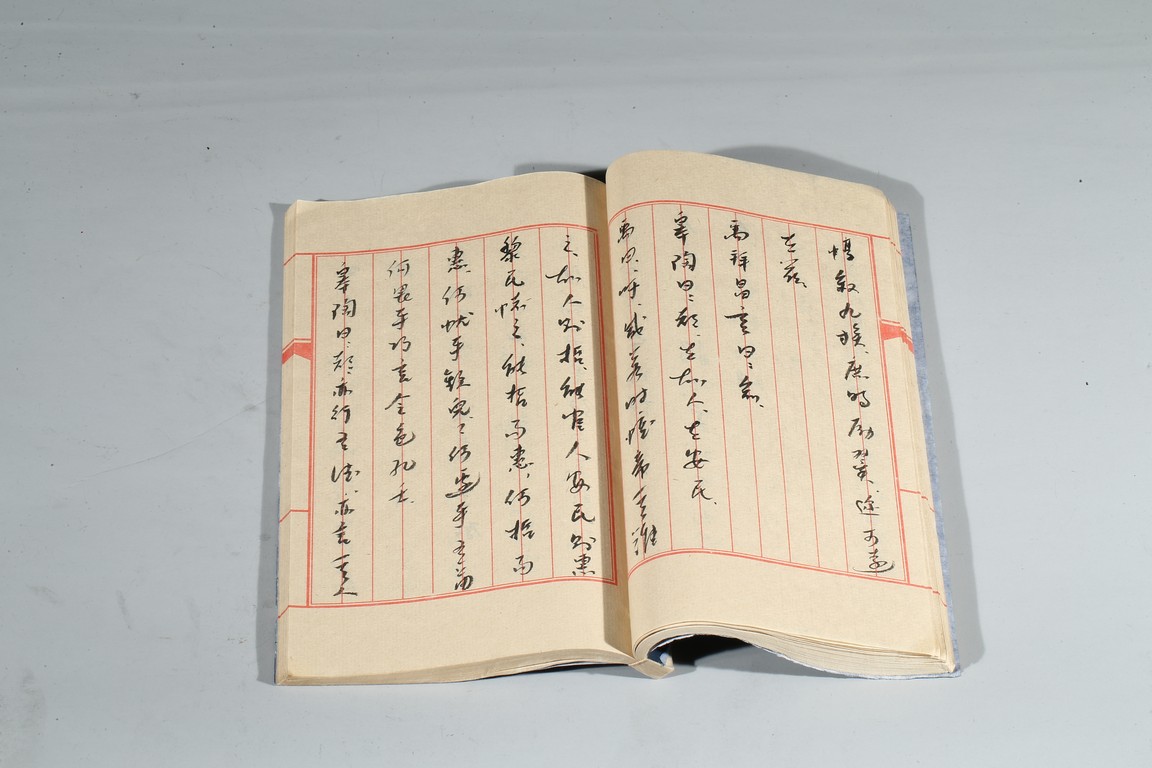 惇叙九族、庶明励翼、迩可遠
在兹、
禹拜昌言曰、俞、
皋陶曰、都、在知人、在安民、
禹曰、吁、咸若时、惟帝其難
之、知人则哲、能官人、安民则惠
黎民怀之、能哲而惠、何哲而
惠、何忧乎驩兜、何迁乎有苗
何畏乎巧言令色孔壬、
皋陶曰、都、亦行有德、亦言其人